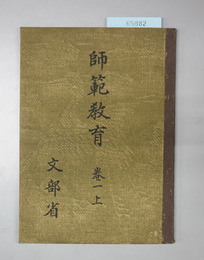 65882
師範教育
巻一上
文部省